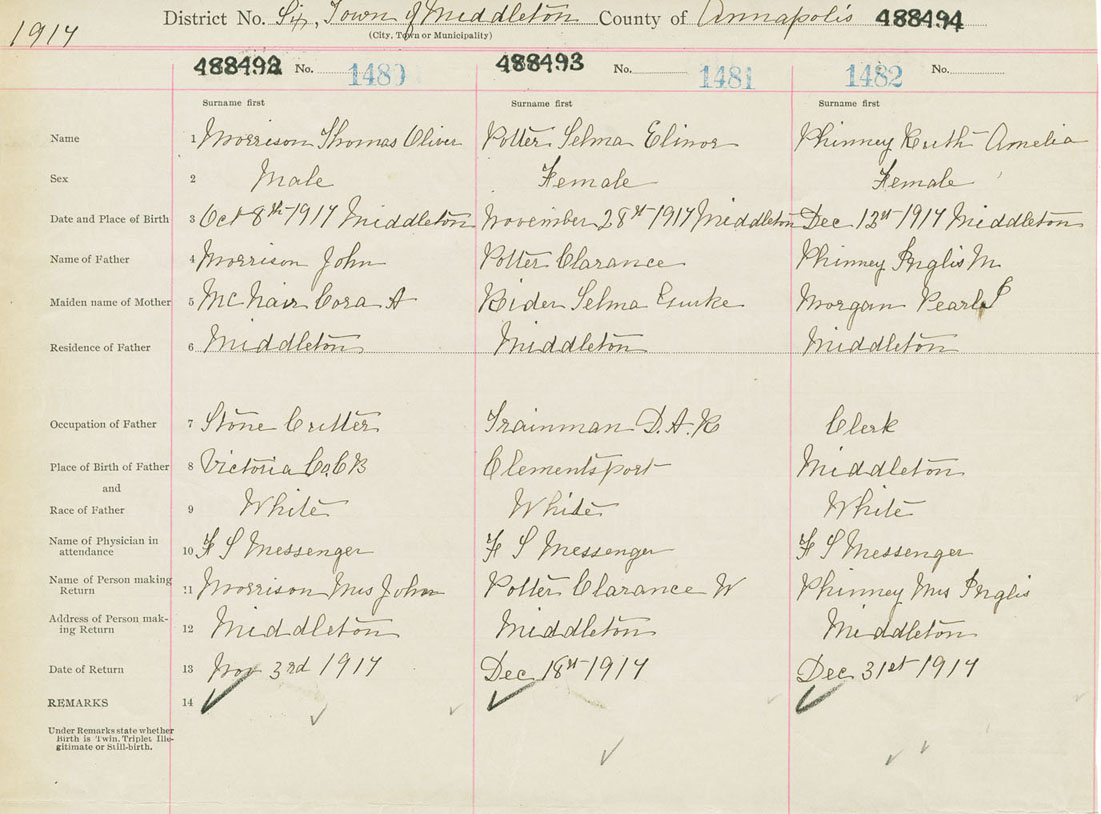 1917
District No. Six, Town of Middleton County of Annapolis 488494
(City, Town or Municipality)
488492 No. 1480 488493 No. 1481 1482 No.
Surname first Surname first Surname first
Name 1 Morrison Thomas Oliver Potter Selma Elinor Phinney Ruth Amelia
Sex 2 Male Female Female
Date and Place of Birth 3 Oct 8th 1917 Middleton November 28st 1917 Middleton Dec 12st 1917 Middleton
Name of Father 4 Morrison John Potter Clarance Phinney Inglis M
Maiden name of Mother 5 McNair Cora A Selma Morgan Pearl
Residence of Father 6 Middleton Middleton Middleton
Occupation of Father 7 Stone Cutter Trainman D.A.R Clerk
Place of Birth of Father 8 Victoria Co. C B Clementsport Middleton
and
Race of Father 9 White White White
Name of Physician in
attendance 10 F S Messenger F S Messenger F S Messenger
Name of Person making
Return 11 Morrison Mrs John Potter Clarance W Phinney Mrs Inglis
Address of Person mak-
ing Return 12 Middleton Middleton Middleton
Date of Return 13 Nov 3rd 1917 Dec 18st 1917 Dec 31st 1917
REMARKS 14
Under Remarks state whether
Birth is Twin, Triplet Ille-
gitimate or Still-birth.